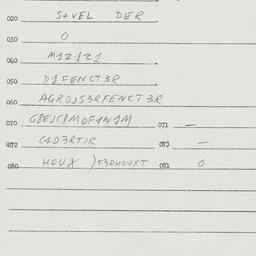 020 S+VEL DER
030 0
040 M12/21
050 D1FENCT3R
060 AGROJS3RFENCT3R
070 071 —
072 C1D3RTIR 073 —
080 HOUX )F3RHOUXT 081 0